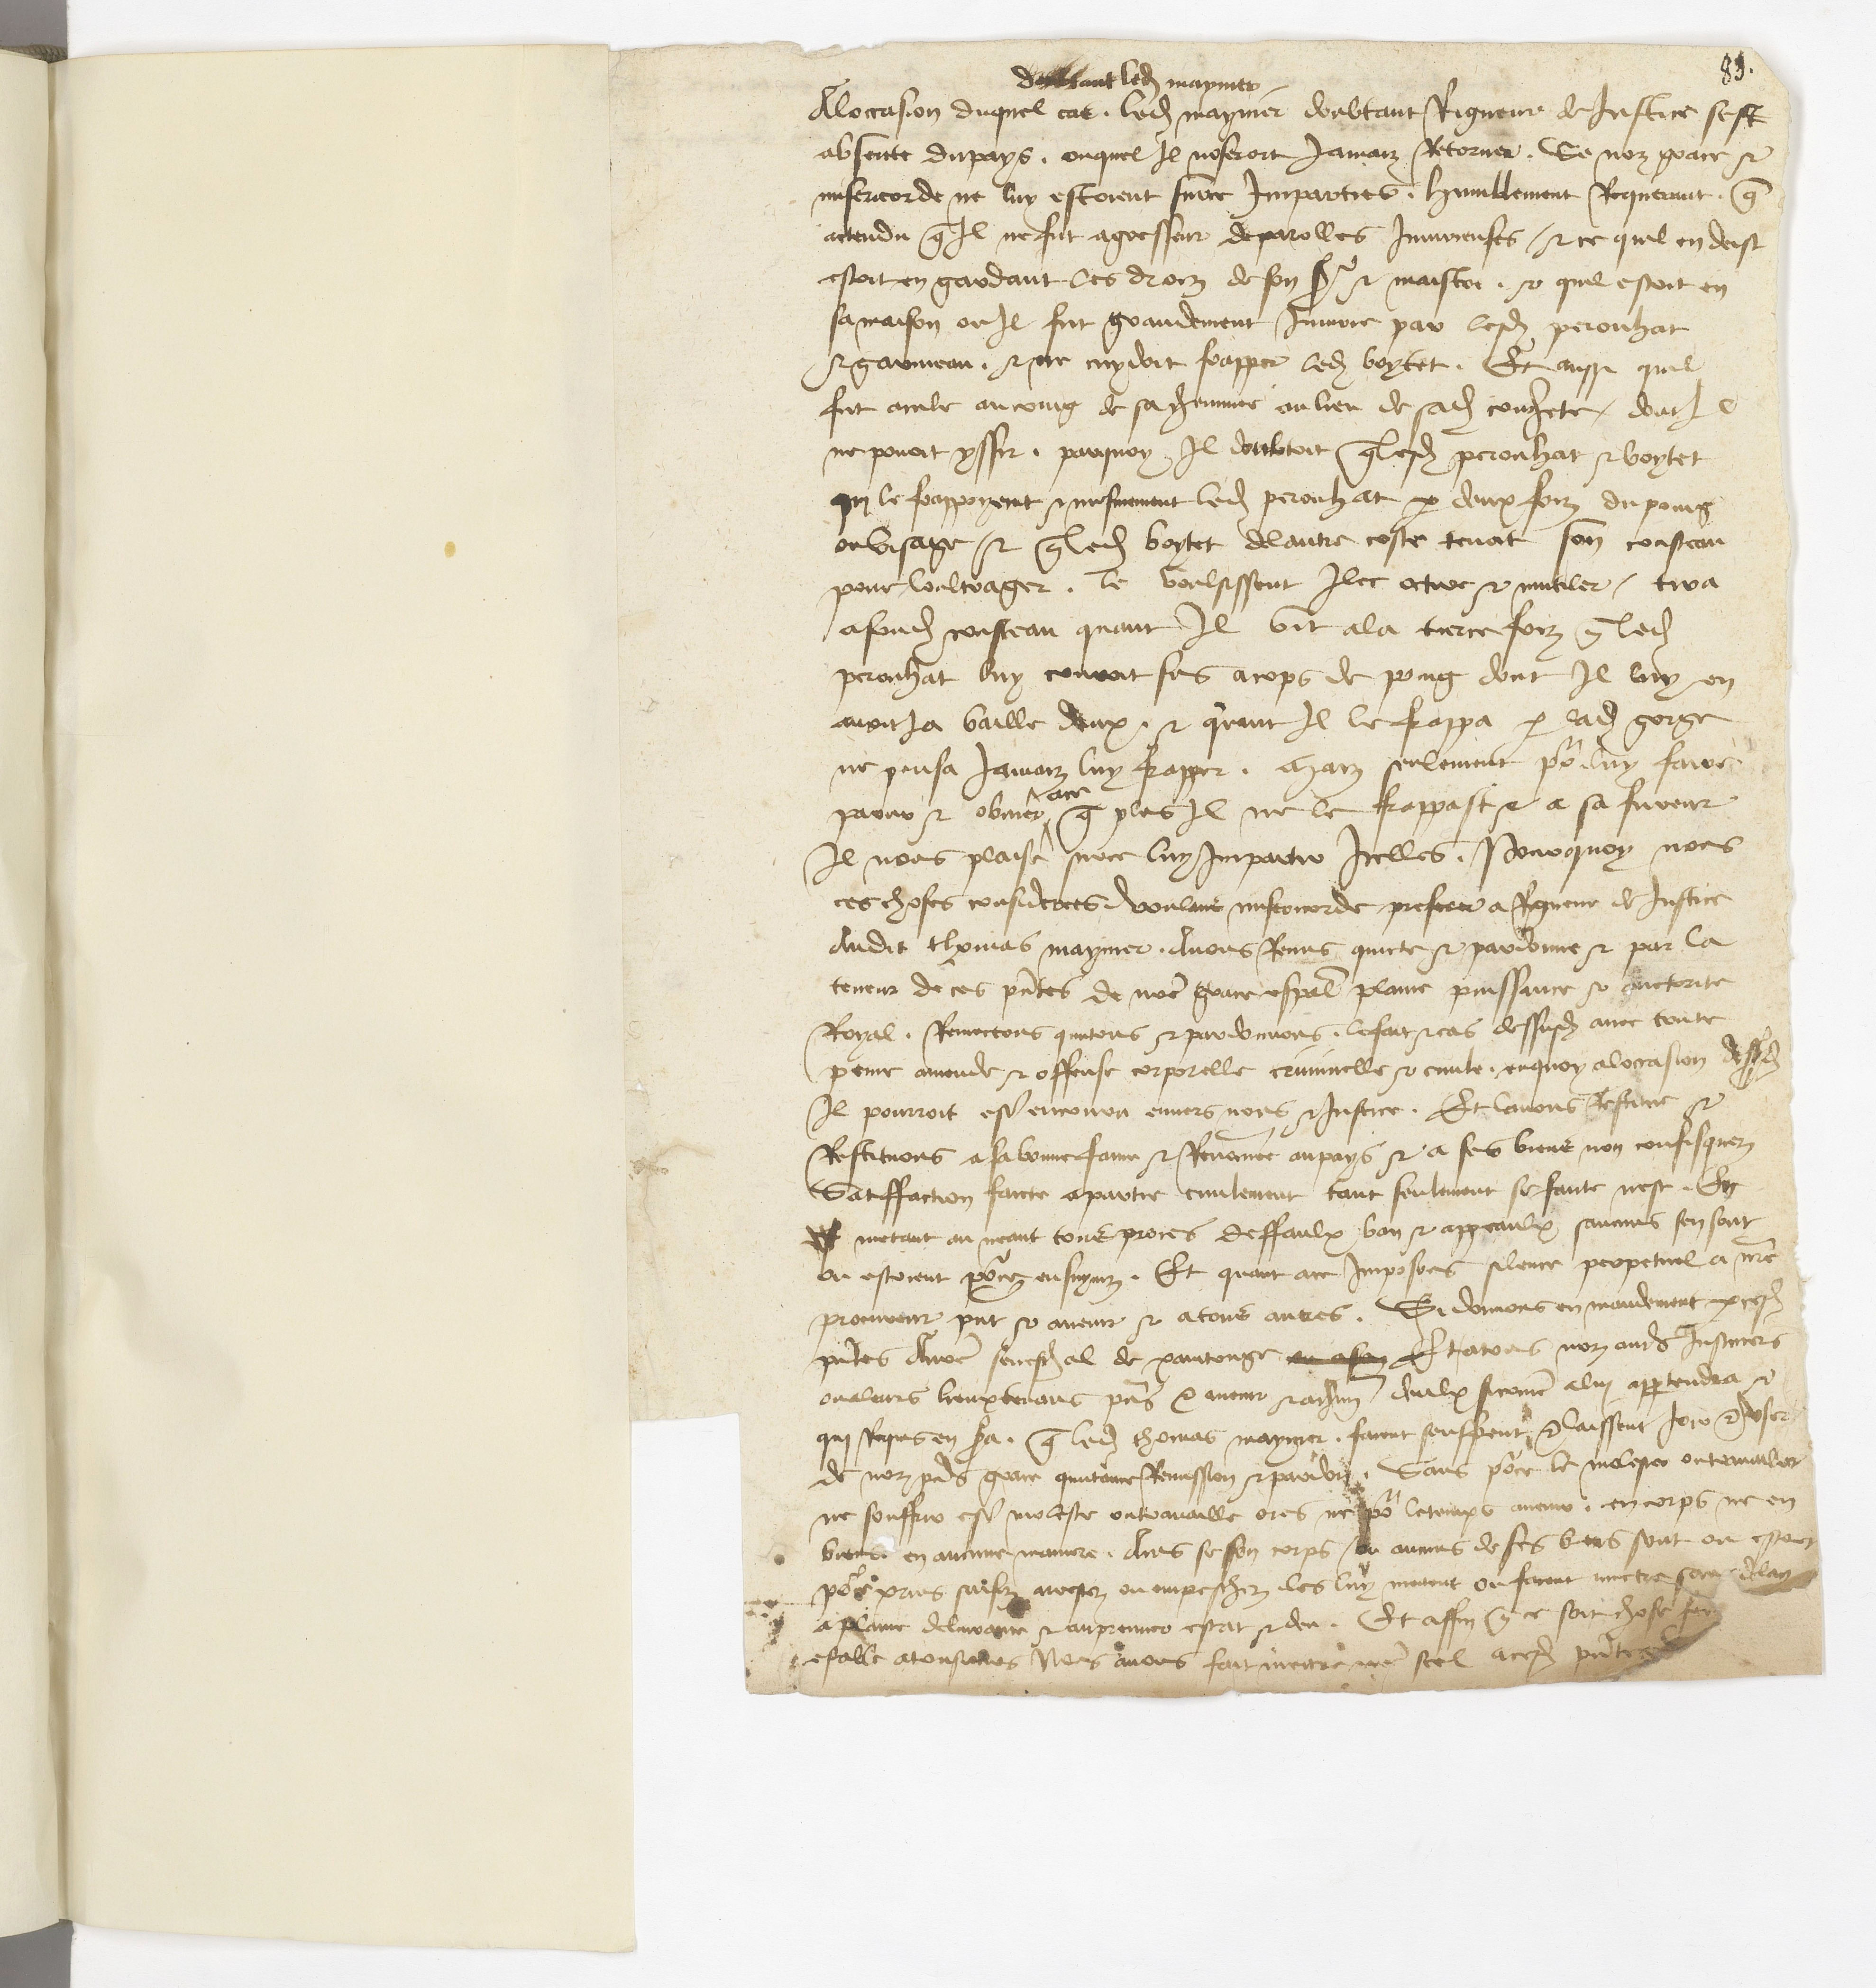 89.
doubtant led maynier
A loccasion duquel cas. led maynier doubtant Rigueur de Justice sest
absente du pays. ouquel Il noseroit Jamaiz Retorner. Se noz grace et
misericorde ne luy estoient sur ce Imparties. humblement Requerant. que
actendu que Il ne fut agresseur de parolles Iniurieuses / et ce quil en deist
estoit en gardant les droiz de son sr et maistre. et quil estoit en
sa maison ou Il fut grandement Iniurie par lesd perouhat
et garineau. et ne cuydoit frapper led boytet. Et aussi quil
fut acule au coing de sa cheminee ou lieu de sad couchete / dont Il
ne povoit yssir. parquoy Il doubtoit que lesd perouhat et boytet
qui le frapperent et mesmement led perouhat par deux foiz du poing
ou visage / et que led boytet de lautre coste tenoit son cousteau
pour loultrager. le voulsissent Ilec octire et mutiler / tira
a soud cousteau quant Il vit a la tierce foiz que led
perouhat luy couroit sus a cops de poing dont Il luy en
avoit Ja baille deux. et quant Il le frappa par lad gorge
ne pensa Jamaiz luy frapper. Maiz seulement pour luy faire
paour et obvier a ce que plus Il ne le frappast et a sa fureur
Il nous plaise sur ce luy Impartir Icelles. Pourquoy nous
ces choses considerees. voulans misericorde preferer a Rigueur de Justice
Audit thomas maynier. Avons Remis quicte et pardonne et par la
teneur de ces pntes de nre grace espal plaine puissance et auctorite
Royal. Remectons quictons et pardonnons. le fait et cas dessusd avec toute
peine amende et offense corporelle criminelle et civile. en quoy a loccasion dessusd
Il pourroit estre encouru envers nous et Justice. Et lavons Restitue et
Restituons a sa bonne fame et Renomee au pays et a ses biens non confisquez
Satisffaction faicte a partie civilement tant seulement se faicte nest. En
metant au neant tous proces deffaulx ban et appeaulx saucuns sen sont
ou estoient pour ce ensuyviz. Et quant a ce Imposons silence perpetuel a nre
procureur pnt et avenir et a tous autres. Si donnons en mandement par cesd
pntes A nre seneschal de xantonge et a tous noz autres Justiciers
ou a leurs lieuxtenans pns et avenir et a chun deulx sicome a luy appartendra et
qui Requis en sera. que led thomas maynier. facent seuffrent et laissent Joir et user
de noz pns grace quictance Remission et pardon. Sans pour ce le molester ou travailler
ne souffrir estre moleste ou travaille ores ne pour le temps avenir. en corps ne en
biens. en aucune maniere. Ains se son corps ou aucuns de ses biens sont ou estoient
pour ce prins saisiz arrestez ou empeschez les luy mectent ou facent mectre sans delay
a plaine delivrance et au premier estat et deu. Et affin que ce soit chose fer
estable a tousiours Nous avons fait mectre nre scel a cesd pntes